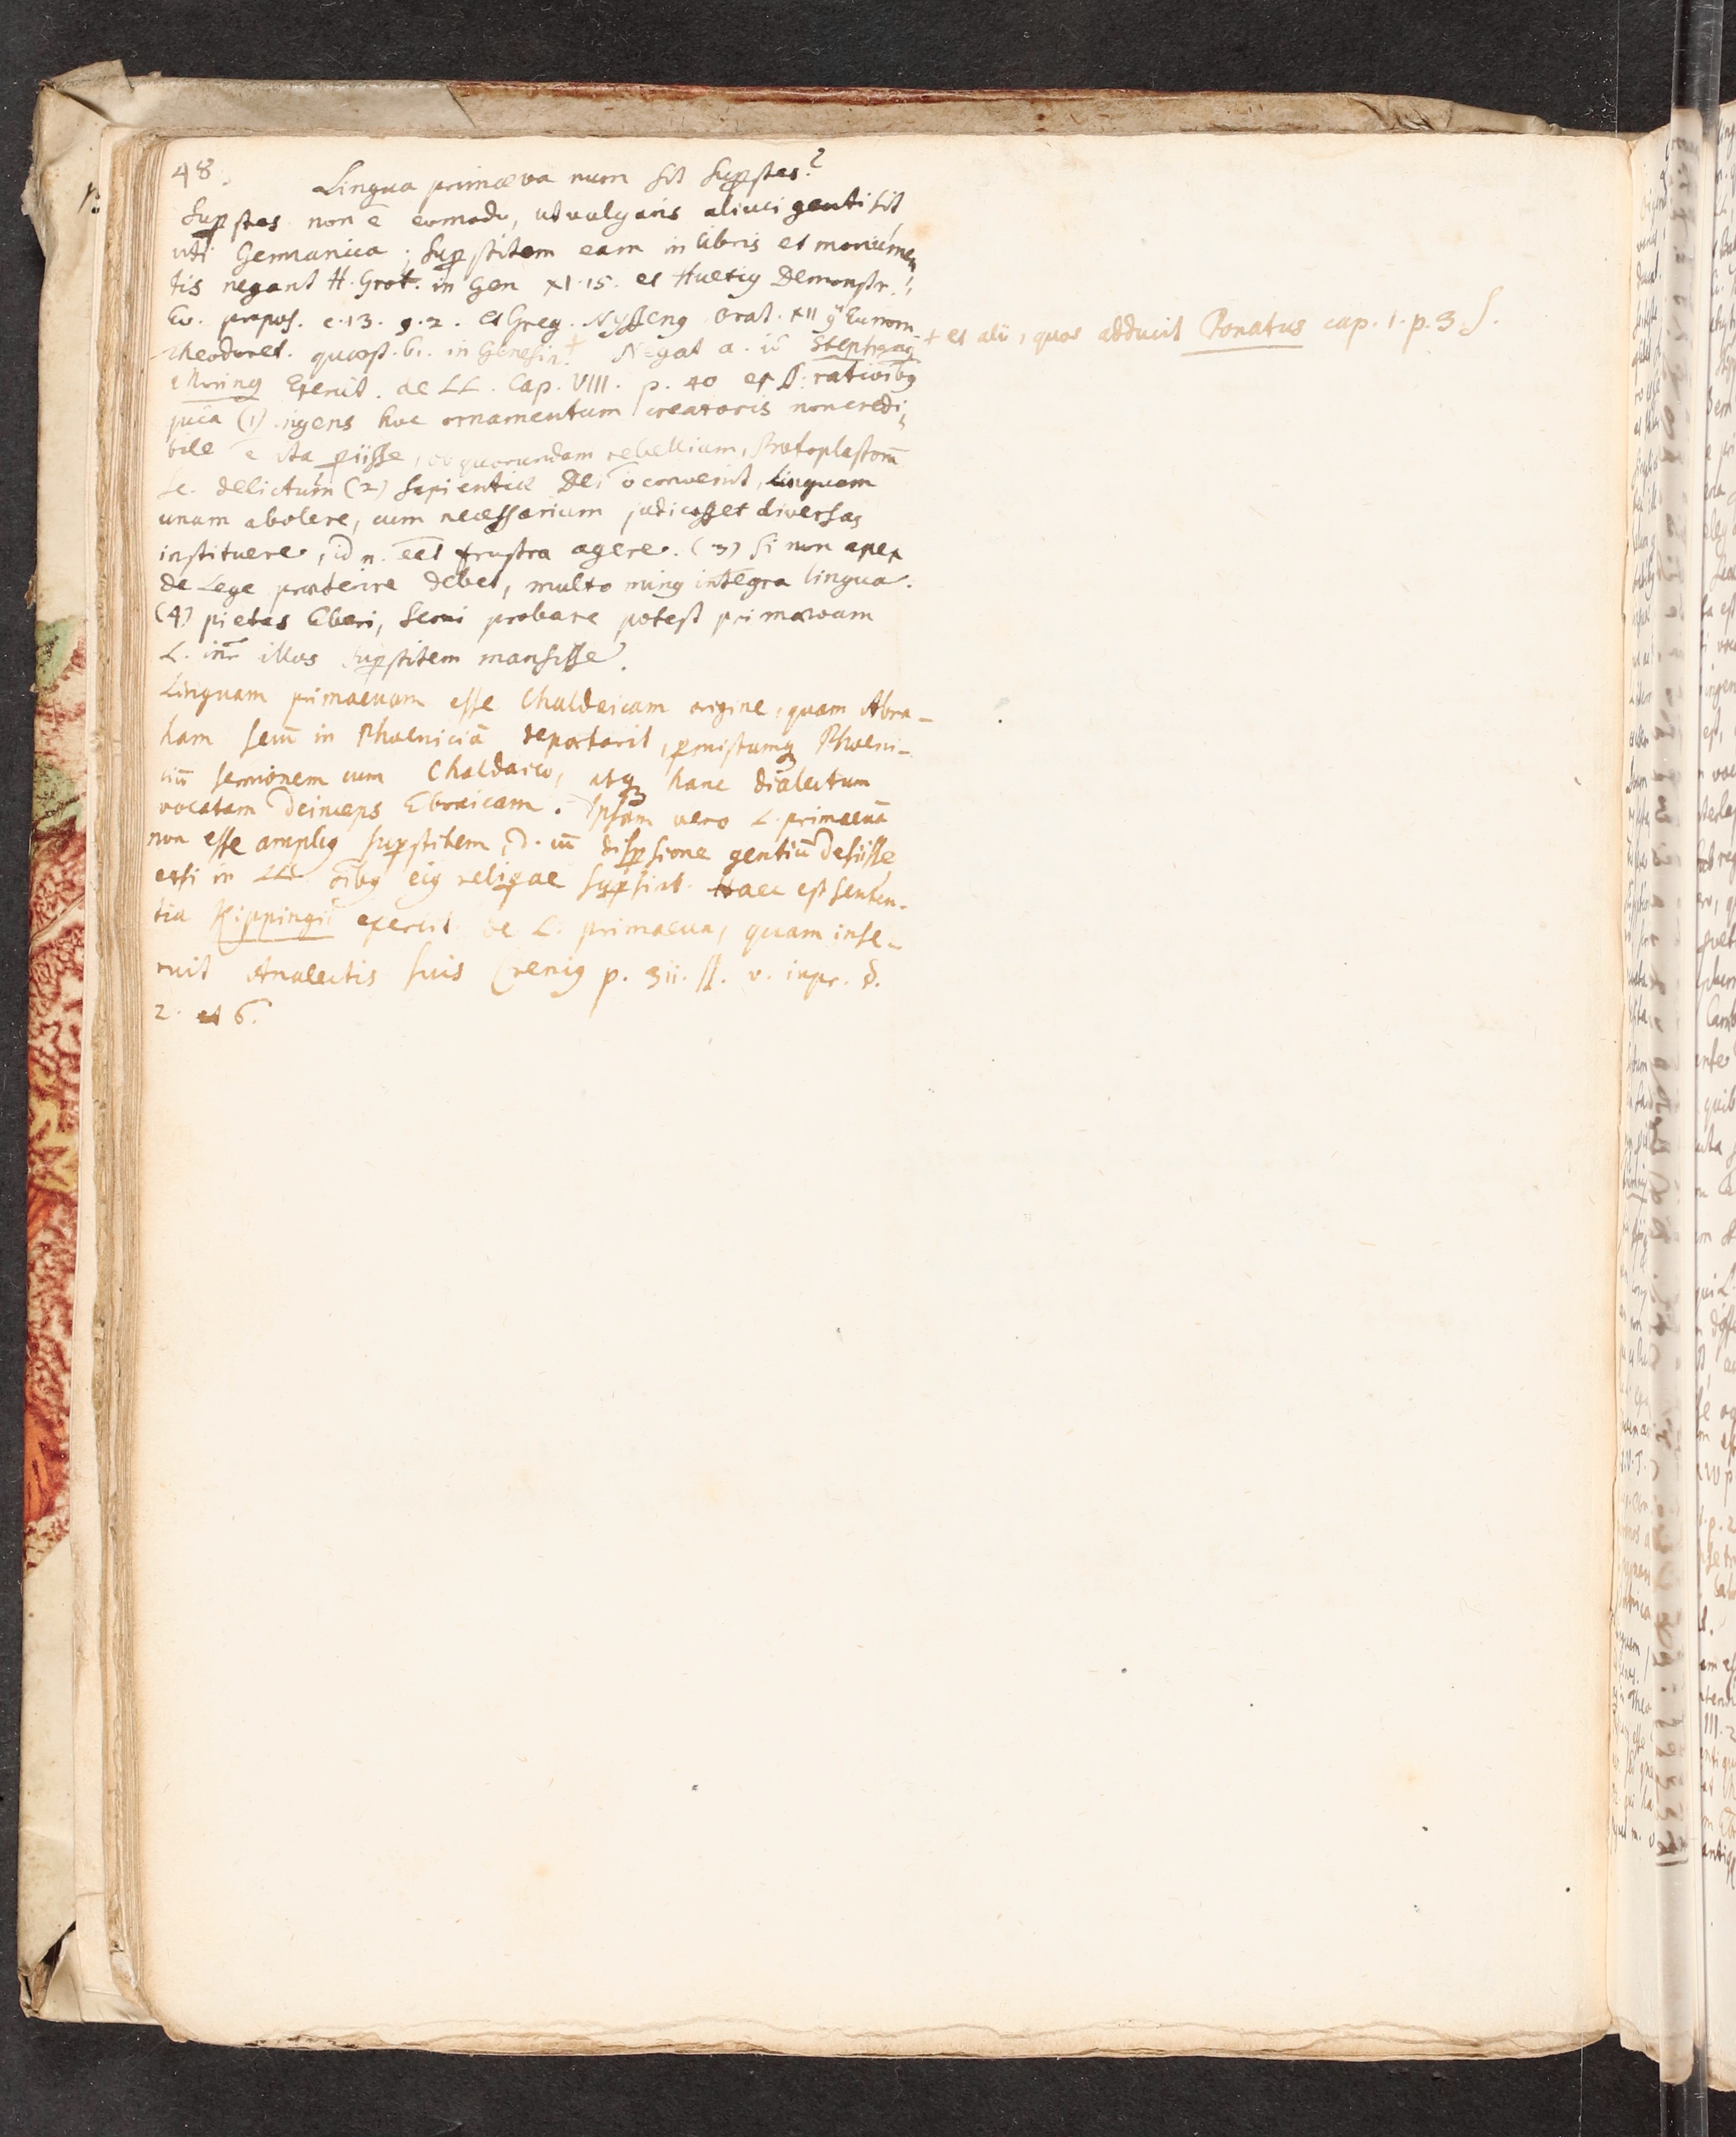 48.
Lingua primaeva num sit supstes?
Supstes non ē eo modo, ut vulgaris alicui genti sit,
uti Germanica; supstitem eam in libris et monumen
tis negant H. Grot. in Gen XI.15. et Huetiꝰ Demonstr.
Ev. propos. c.13. §.2. et Greg. Nyssenꝰ Orat. XII Eunom.
Theodoret. quaest. 61. in Genesin. + Negat a. Stephanꝰ
Morinꝰ Exercit. de LL. Cap. VIII. p. 40 et rationibꝰ
quia (1) ingens hoc ornamentum creatoris non credi
bile ē ita piisse, ob quorundam rebellium, Protoplastorū
sc. delictum (2) sapientiae Dei ō convenit, linguam
unam abolere, cum necessarium judicasset diversas
instituere, id n. eet frustra agere. (3) Si non apex
de Lege praeterire debet, multo minꝰ integra lingua.
(4) pietas Eberi, Semi probare potest primaevam
L. inr̄ illos supstitem mansisse.
Linguam primaevam esse Chaldaicam origine, quam Abra-
ham secū in Phoeniciā deportarit, pmistumq Phoeni-
ciū sermonem cum Chaldaico, atq hanc dialectum
vocatam deinceps Ebraicam. Ipsam vero L. primaevā
non esse ampliꝰ supstitem, dispsione gentiū desiisse
etsi in LL. oībꝰ eiꝰ reliqae supsint. Haec est senten-
tia Kippingii exercit. de L. primaeva, quam inse-
ruit Analectis suis Creniꝰ p. 311. ss. v. inpr. §.
2. et 6.
+ et alii, quos adducit Bonatus cap. 1. p. 3. s.